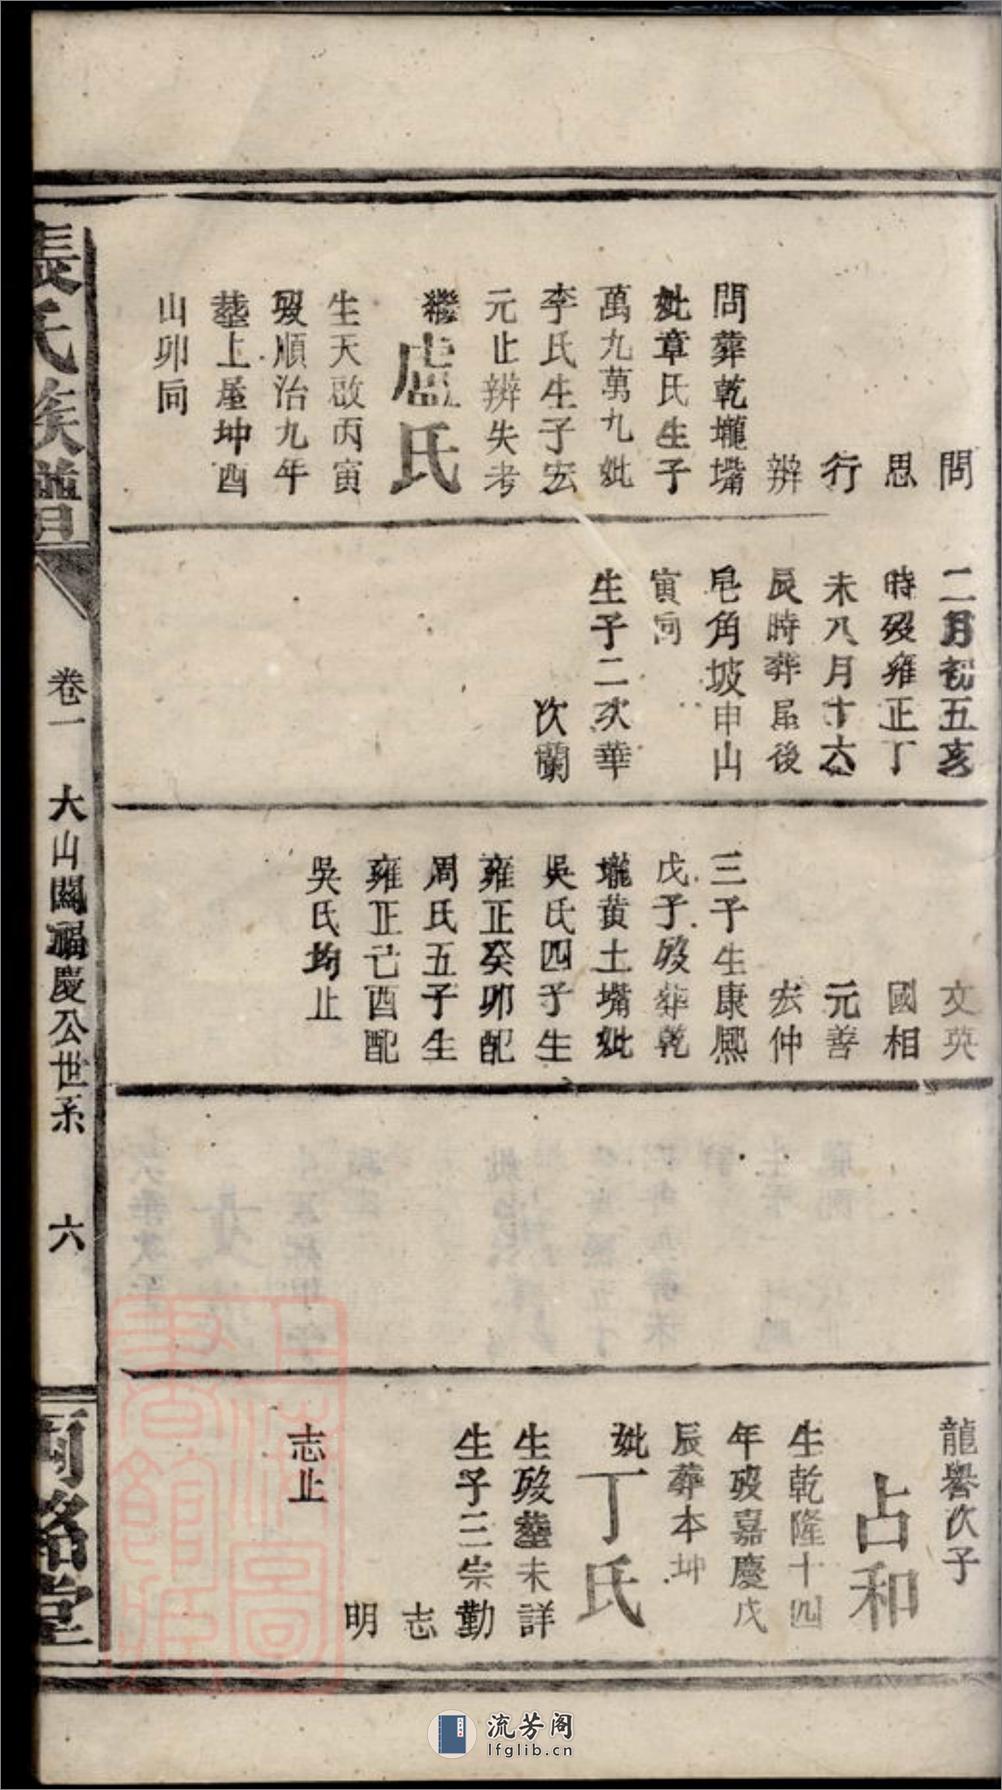 問
思
行
辨
問葬乾壠嘴
妣章氏生子
萬九萬九妣
李氏生子宏
元止辨失考
繼盧氏
生天啟丙寅
歿順治九年
塟上屋坤酉
山卯向
二月初五亥
時歿雍正丁
未八月十六
辰時葬屋後
皂角坡申山
寅向
生子二次華
次蘭
文英
國相
元善
宏仲
三子生康熈
戊子歿葬乾
壠黄土嘴妣
吳氏四子生
雍正癸卯配
周氏五子生
雍正己酉配
吳氏均止
龍譽次子
占和
生乾隆十四
年歿嘉慶戊
辰葬本坤
妣丁氏
生歿塟未詳
生子三宗勤
志
明
志止
張氏族譜
卷一
大山關福慶公世系
六
兩銘堂
上海圖書館藏
流芳阁
lfglib.cn